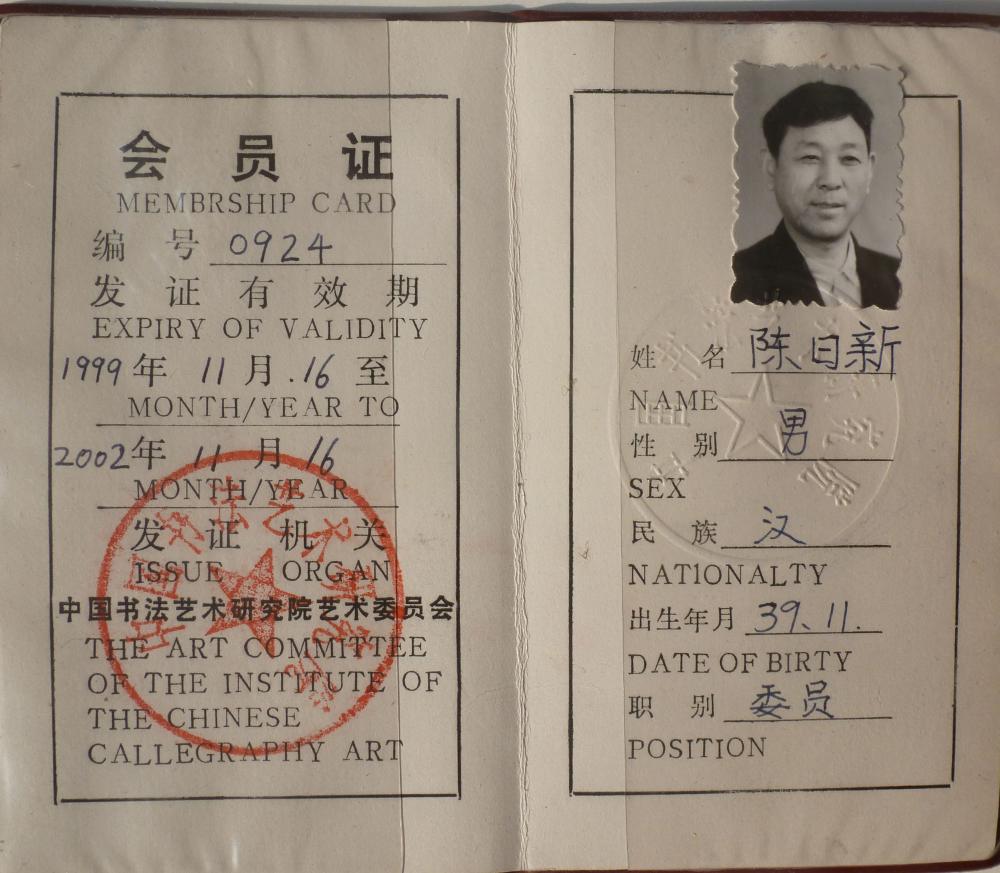 会员证
MEMBRSHIP CARD
编号 0924
发证有效期
EXPIRY OF VALIDITY
1999年 11月.16至
MONTH/YEAR TO
2002年 11月16
MONTH/YEAR
发证机关
ISSUE ORGAN
中国书法艺术研究院艺术委员会
THE ART COMMITTEE
OF THE INSTITUTE OF
THE CHINESE
CALLEGRAPHY ART
中国书法艺术研究院
姓名 陈日新
NAME
性别 男
SEX
民族 汉
NATIONALTY
出生年月 39.11.
DATE OF BIRTY
职别 委员
POSITION